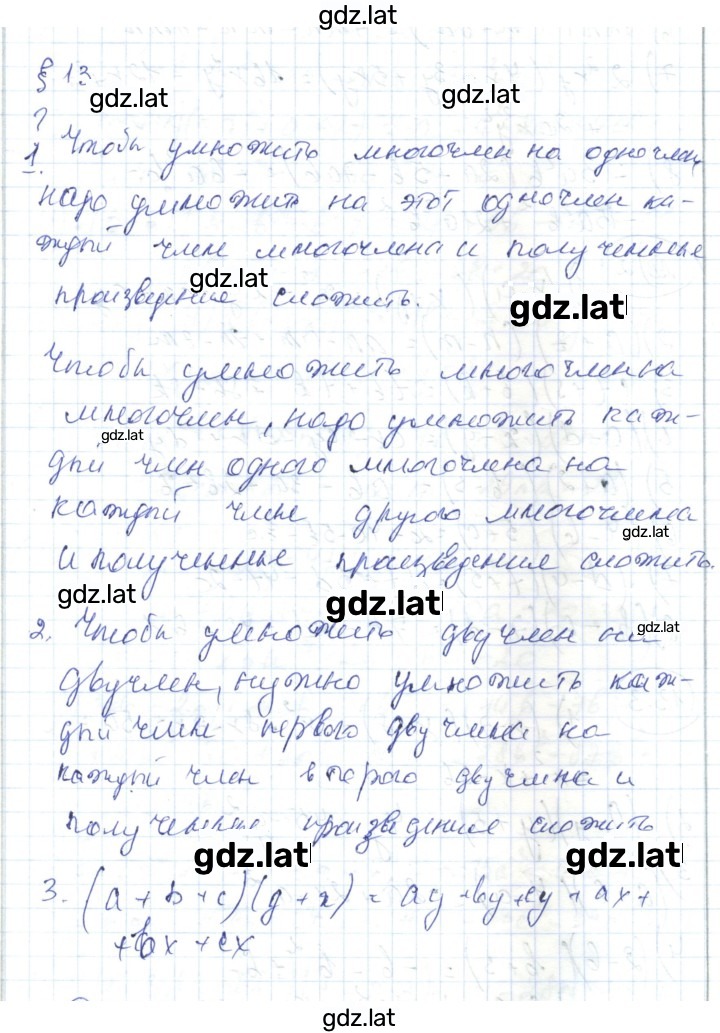 gdz.lat
§ 13
gdz.lat
gdz.lat
?
1. Чтобы умножить многочлен на одночлен,
надо умножить на этот одночлен ка-
ждый член многочлена и полученные
gdz.lat
произведение сложить.
gdz.lat
Чтобы умножить многочлен на
многочлен, надо умножить каж-
gdz.lat
дый член одного многочлена на
каждый член другого многочлена
gdz.lat
и полученные произведения сложить.
gdz.lat
gdz.lat
2. Чтобы умножить двучлен на
gdz.lat
двучлен, нужно умножить каж-
дый член первого двучлена на
каждый член второго двучлена и
полученные произведение сложить
gdz.lat
gdz.lat
3. (a + b + c)(y + x) = ay + by + cy + ax +
+ bx + cx
gdz.lat